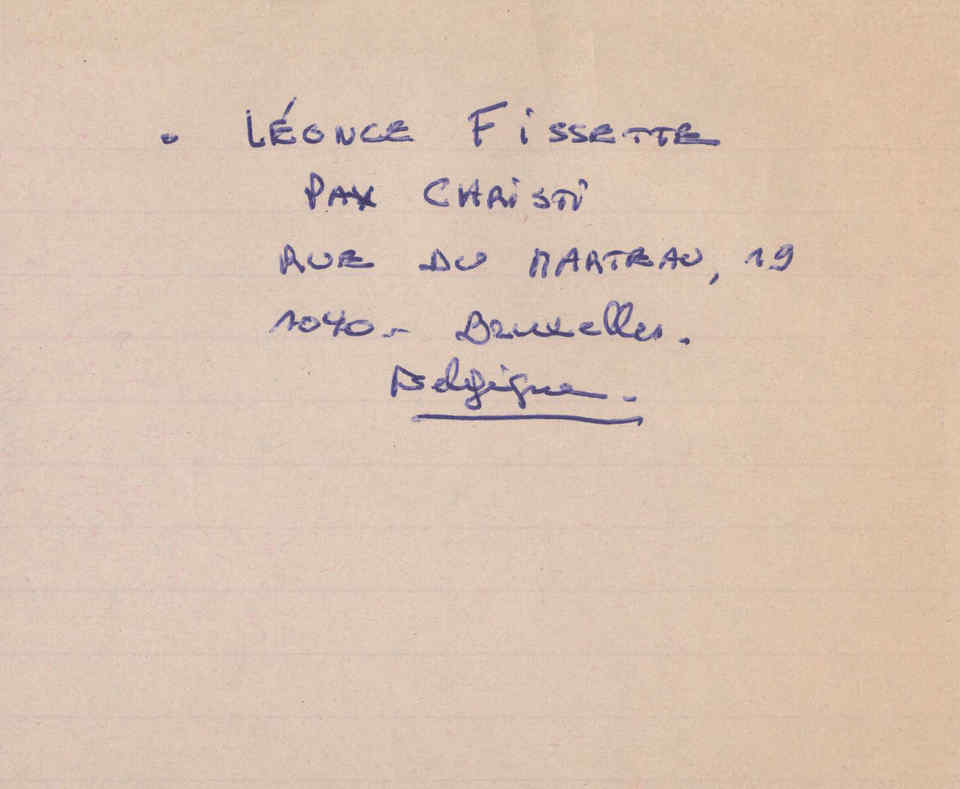 . LÉONCE FISSETTE
PAX CHRISTI
RUE DU MARTEAU, 19
1040.- Bruxelles.
Belgique.